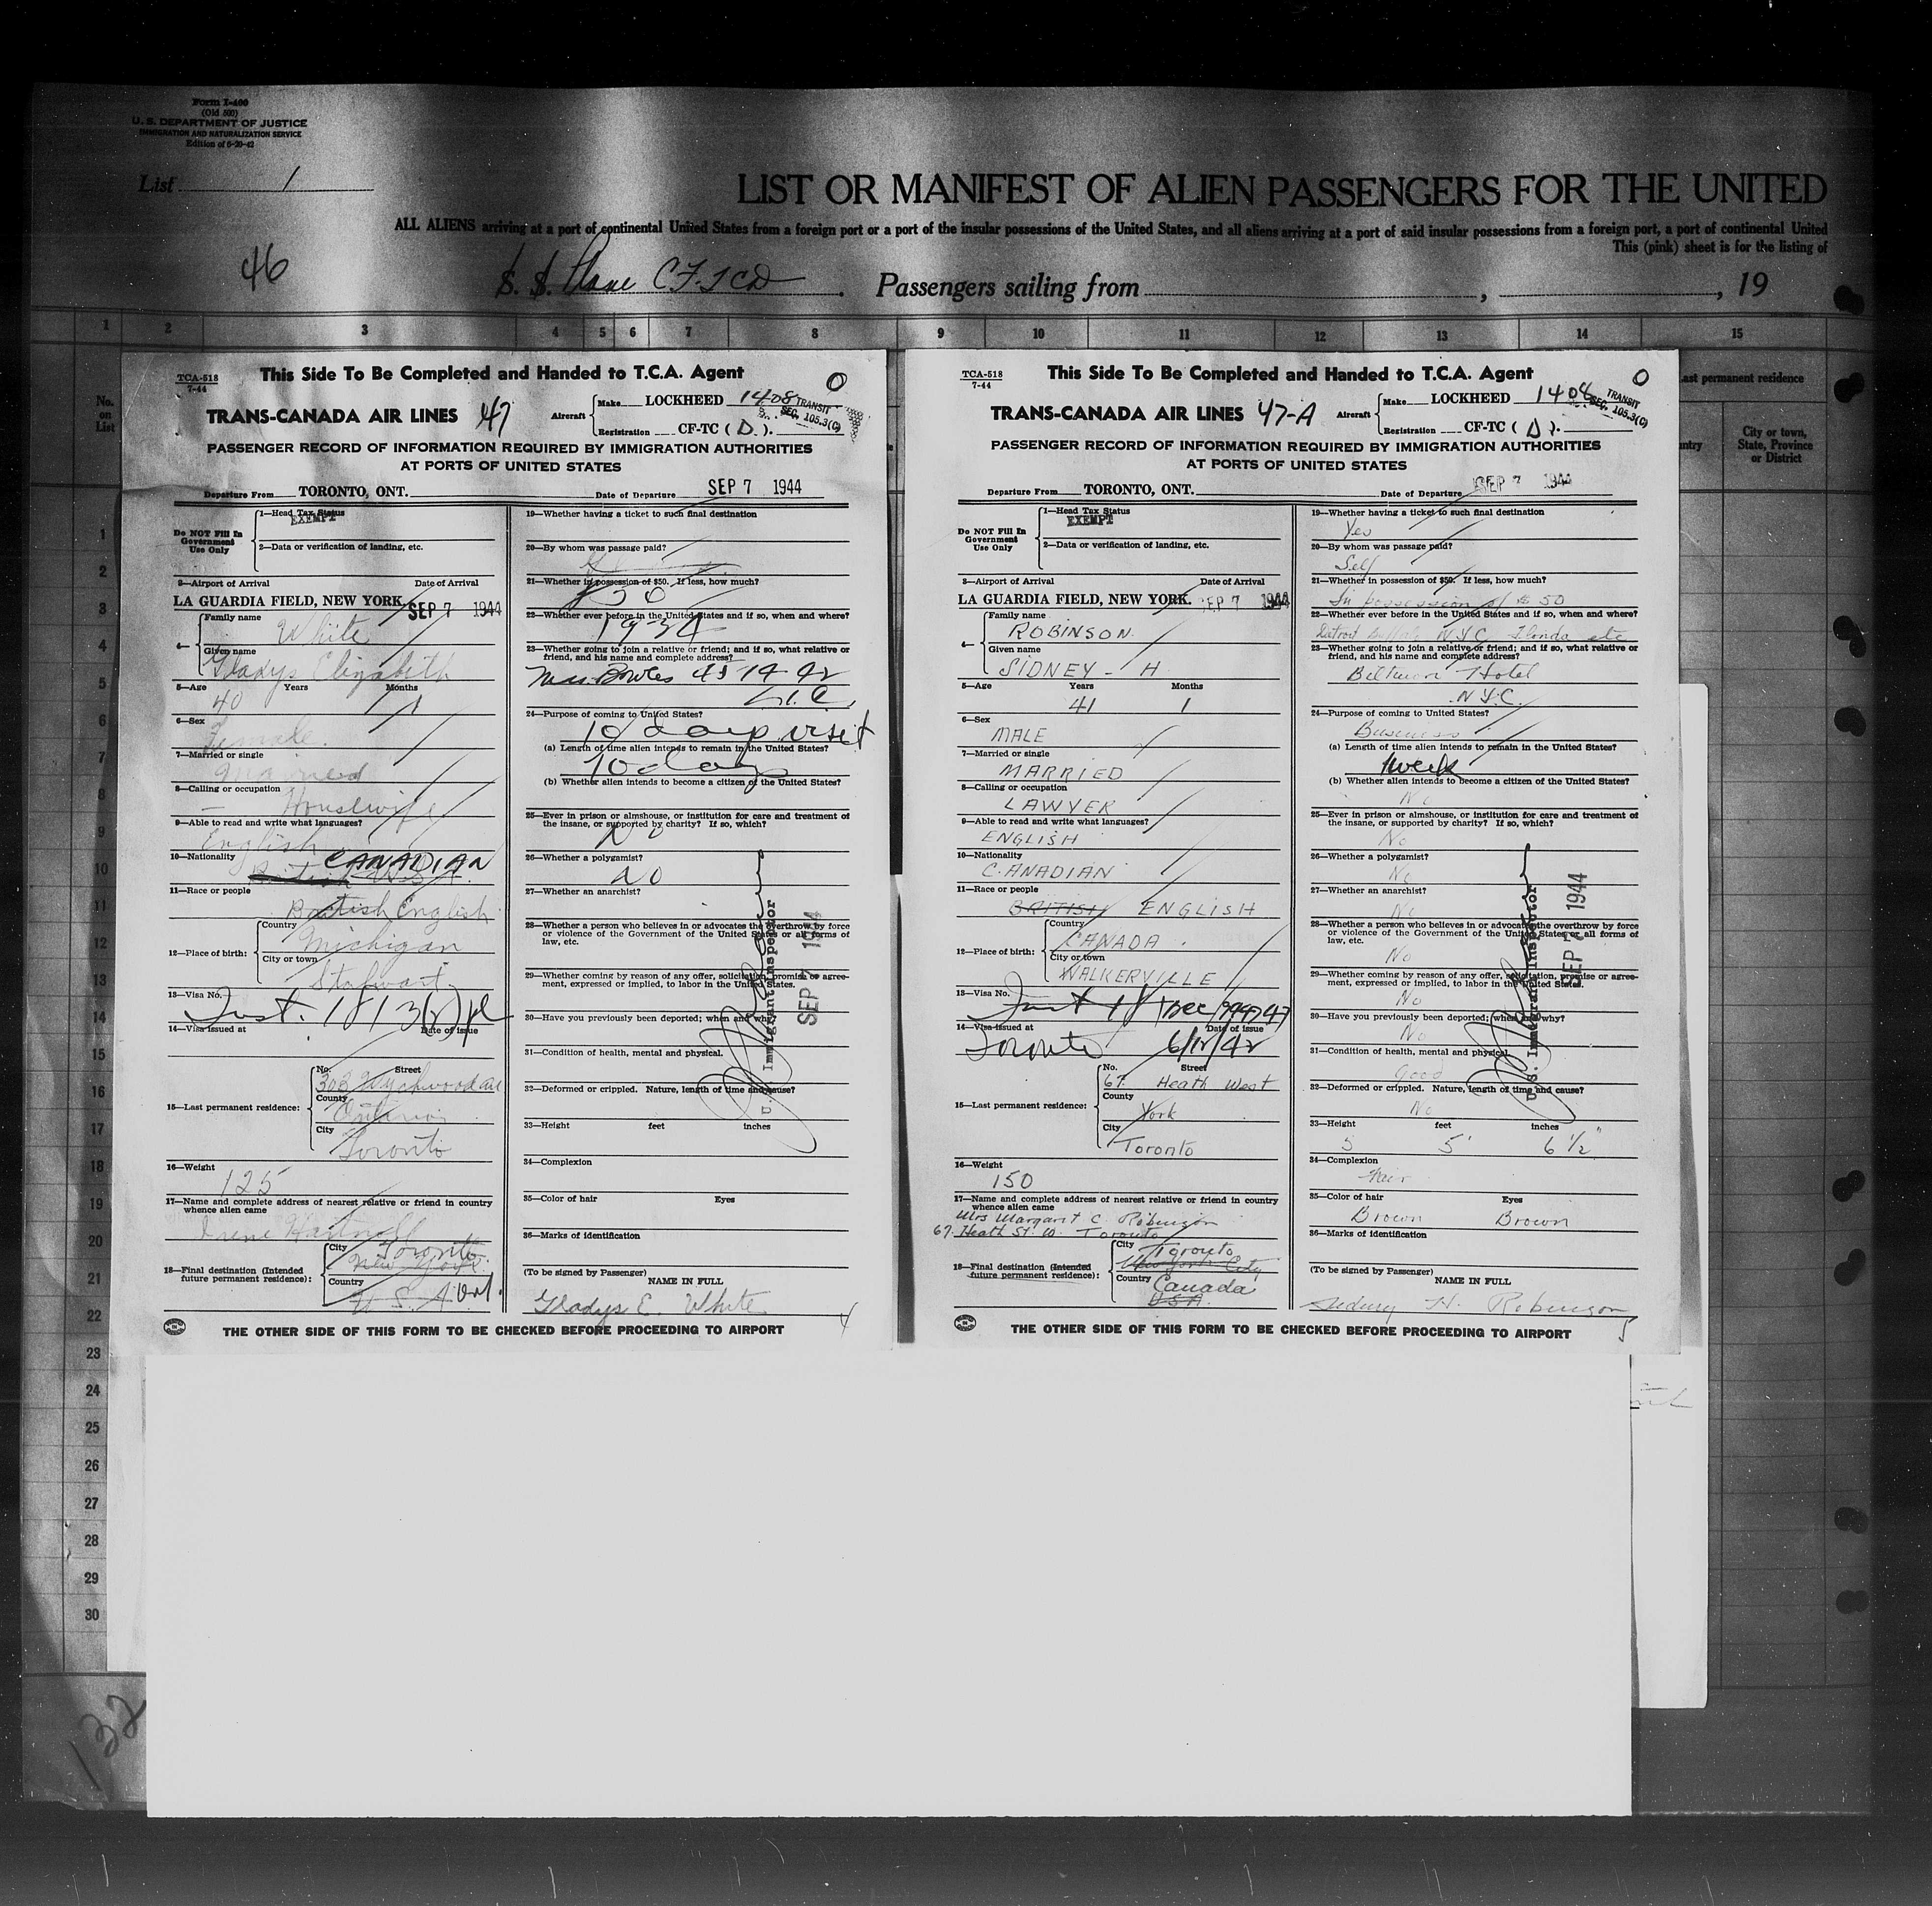 Form I-400
(Old 500)
U. S. DEPARTMENT OF JUSTICE
IMMIGRATION AND NATURALIZATION SERVICE
Edition of 6-20-42
List 1
LIST OR MANIFEST OF ALIEN PASSENGERS FOR THE UNITED
ALL ALIENS arriving at a port of continental United States from a foreign port or a port of the insular possessions of the United States, and all aliens arriving at a port of said insular possessions from a foreign port, a port of continental United
This (pink) sheet is for the listing of
46
S. S. Plane CF-TCD. Passengers sailing from , , 19
1 2 3 4 5 6 7 8 9 10 11 12 13 14 15
No. on List
ast permanent residence
ntry
City or town, State, Province or District
TCA-518
7-44
This Side To Be Completed and Handed to T.C.A. Agent
0
TRANS-CANADA AIR LINES 47
Aircraft
Make LOCKHEED 1408
Registration CF-TC ( D ).
TRANSIT
SEC. 105.3(C)
PASSENGER RECORD OF INFORMATION REQUIRED BY IMMIGRATION AUTHORITIES
AT PORTS OF UNITED STATES
Departure From TORONTO, ONT. Date of Departure SEP 7 1944
Do NOT Fill In Government Use Only
1—Head Tax Status
EXEMPT
2—Data or verification of landing, etc.
3—Airport of Arrival Date of Arrival
LA GUARDIA FIELD, NEW YORK. SEP 7 1944
4—
Family name
White
Given name
Gladys Elizabeth
5—Age Years Months
40 1
6—Sex
Female
7—Married or single
Married
8—Calling or occupation
— Housewife
9—Able to read and write what languages?
English
10—Nationality CANADIAN
British U.S.A.
11—Race or people
British English
12—Place of birth:
Country
Michigan
City or town
Stalwart
13—Visa No.
14—Visa issued at Date of issue
15—Last permanent residence:
No. Street
303 Wychwood Ave
County
Ontario
City
Toronto
16—Weight
125
17—Name and complete address of nearest relative or friend in country whence alien came
Irene Hartnell
18—Final destination (Intended future permanent residence):
City Toronto
New York
Country
U. S. A Ont.
19—Whether having a ticket to such final destination
20—By whom was passage paid?
21—Whether in possession of $50. If less, how much?
$50
22—Whether ever before in the United States and if so, when and where?
1934
23—Whether going to join a relative or friend; and if so, what relative or friend, and his name and complete address?
Mrs. Bowles 45 14 42
L.I.C.
24—Purpose of coming to United States?
10 day visit
(a) Length of time alien intends to remain in the United States?
10 days
(b) Whether alien intends to become a citizen of the United States?
25—Ever in prison or almshouse, or institution for care and treatment of the insane, or supported by charity? If so, which?
No
26—Whether a polygamist?
No
27—Whether an anarchist?
28—Whether a person who believes in or advocates the overthrow by force or violence of the Government of the United States or all forms of law, etc.
29—Whether coming by reason of any offer, solicitation, promise or agreement, expressed or implied, to labor in the United States.
30—Have you previously been deported; when and why?
31—Condition of health, mental and physical.
32—Deformed or crippled. Nature, length of time and cause?
33—Height feet inches
34—Complexion
35—Color of hair Eyes
36—Marks of identification
(To be signed by Passenger)
NAME IN FULL
Gladys E. White
U. S. Immigrant Inspector
SEP 7 1944
THE OTHER SIDE OF THIS FORM TO BE CHECKED BEFORE PROCEEDING TO AIRPORT
TCA-518
7-44
This Side To Be Completed and Handed to T.C.A. Agent
0
TRANS-CANADA AIR LINES 47-A
Aircraft
Make LOCKHEED 1408
Registration CF-TC ( D ).
TRANSIT
SEC. 105.3(C)
PASSENGER RECORD OF INFORMATION REQUIRED BY IMMIGRATION AUTHORITIES
AT PORTS OF UNITED STATES
Departure From TORONTO, ONT. Date of Departure SEP 7 1944
Do NOT Fill In Government Use Only
1—Head Tax Status
EXEMPT
2—Data or verification of landing, etc.
3—Airport of Arrival Date of Arrival
LA GUARDIA FIELD, NEW YORK. SEP 7 1944
4—
Family name
ROBINSON
Given name
SIDNEY - H
5—Age Years Months
41 1
6—Sex
MALE
7—Married or single
MARRIED
8—Calling or occupation
LAWYER
9—Able to read and write what languages?
ENGLISH
10—Nationality
CANADIAN
11—Race or people
BRITISH ENGLISH
12—Place of birth:
Country
CANADA
City or town
WALKERVILLE
13—Visa No.
14—Visa issued at Date of issue
Toronto 6/12/42
15—Last permanent residence:
No. Street
67 Heath West
County
York
City
Toronto
16—Weight
150
17—Name and complete address of nearest relative or friend in country whence alien came
Mrs Margaret C. Robinson
67 Heath St. W. Toronto
18—Final destination (Intended future permanent residence):
City Toronto
New York City
Country Canada
USA.
19—Whether having a ticket to such final destination
Yes
20—By whom was passage paid?
Self
21—Whether in possession of $50. If less, how much?
In possession of $50
22—Whether ever before in the United States and if so, when and where?
Detroit Buffalo N.Y.C. Florida etc
23—Whether going to join a relative or friend; and if so, what relative or friend, and his name and complete address?
Biltmore Hotel
N.Y.C.
24—Purpose of coming to United States?
Business
(a) Length of time alien intends to remain in the United States?
1 week
(b) Whether alien intends to become a citizen of the United States?
No
25—Ever in prison or almshouse, or institution for care and treatment of the insane, or supported by charity? If so, which?
No
26—Whether a polygamist?
No
27—Whether an anarchist?
No
28—Whether a person who believes in or advocates the overthrow by force or violence of the Government of the United States or all forms of law, etc.
No
29—Whether coming by reason of any offer, solicitation, promise or agreement, expressed or implied, to labor in the United States.
No
30—Have you previously been deported; when and why?
No
31—Condition of health, mental and physical.
Good
32—Deformed or crippled. Nature, length of time and cause?
No
33—Height feet inches
5 5' 6 1/2"
34—Complexion
Fair
35—Color of hair Eyes
Brown Brown
36—Marks of identification
(To be signed by Passenger)
NAME IN FULL
Sidney H. Robinson
U. S. Immigrant Inspector
SEP 7 1944
THE OTHER SIDE OF THIS FORM TO BE CHECKED BEFORE PROCEEDING TO AIRPORT
1
2
3
4
5
6
7
8
9
10
11
12
13
14
15
16
17
18
19
20
21
22
23
24
25
26
27
28
29
30
132